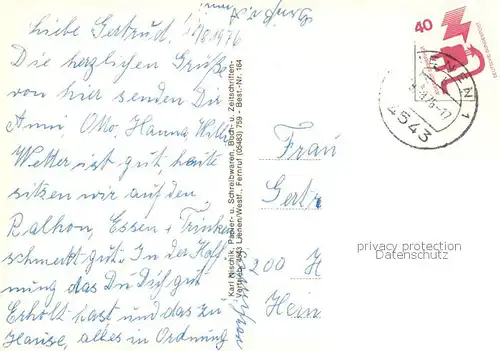 Liebe Gertrud! 7/8. 1976
Die herzlichen Grüße
von hier senden Dir
Anni, Otto, Hanna, Willi
Wetter ist gut, heute
sitzen wir auf den
Balkon, Essen + Trinken
schmeckt gut. In der Hoff-
nung das Du Dich gut
Erholt hast und das zu
Hause, alles in Ordnung
Karl Nischik, Papier- u. Schreibwaren, Buch- u. Zeitschriften-
Vertrieb, 4543 Lienen/Westf., Fernruf (05483) 759 - Best.-Nr. 164
40
DEUTSCHE BUNDESPOST
LIENEN 1
-17
4543
Frau
Gertr
200 H
Hern
privacy protection
Datenschutz